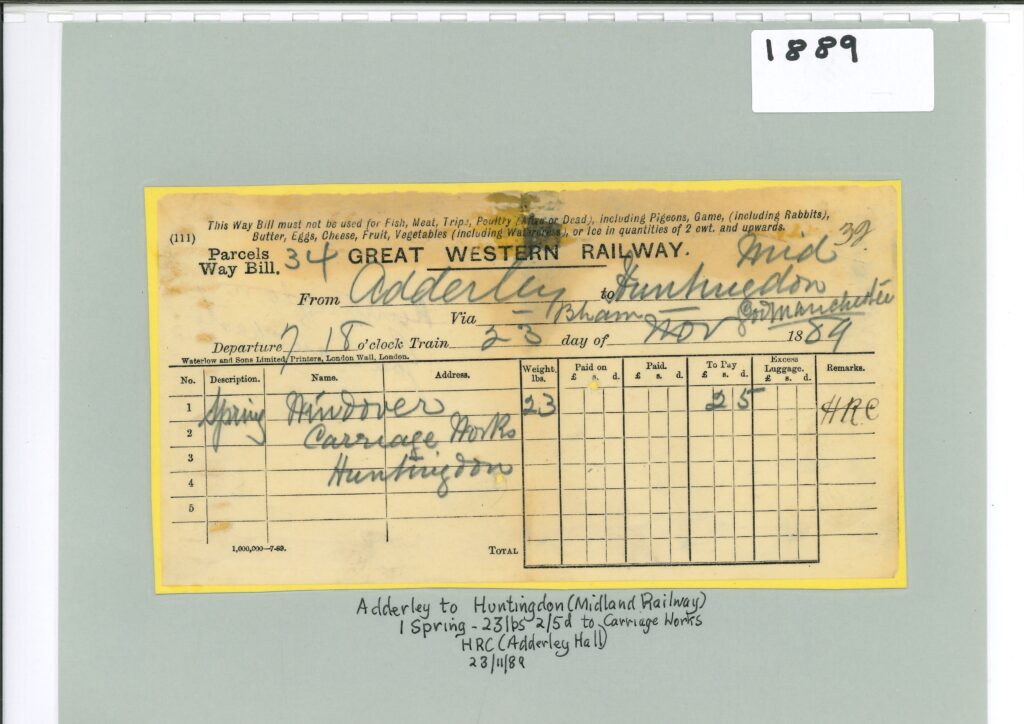 1889
This Way Bill must not be used for Fish, Meat, Tripe, Poultry (Alive or Dead), including Pigeons, Game, (including Rabbits),
(111) Butter, Eggs, Cheese, Fruit, Vegetables (including Watercress), or Ice in quantities of 2 cwt. and upwards.
Parcels Way Bill. 34 GREAT WESTERN RAILWAY. Mid
From Adderley to Huntingdon
Via Bham Manchester
Departure 7 18 o'clock Train 23 day of Nov 1889
Waterlow and Sons Limited, Printers, London Wall, London.
No. Description. Name. Address. Weight. lbs. Paid on £ s. d. Paid. £ s. d. To Pay £ s. d. Excess Luggage. £ s. d. Remarks.
1 Spring Windover 23 2 5 HRC
2 Carriage Works
3 Huntingdon
4
5
1,000,000—7-89. TOTAL
Adderley to Huntingdon (Midland Railway)
1 Spring - 23lbs 2/5d to Carriage Works
HRC (Adderley Hall)
23/11/89